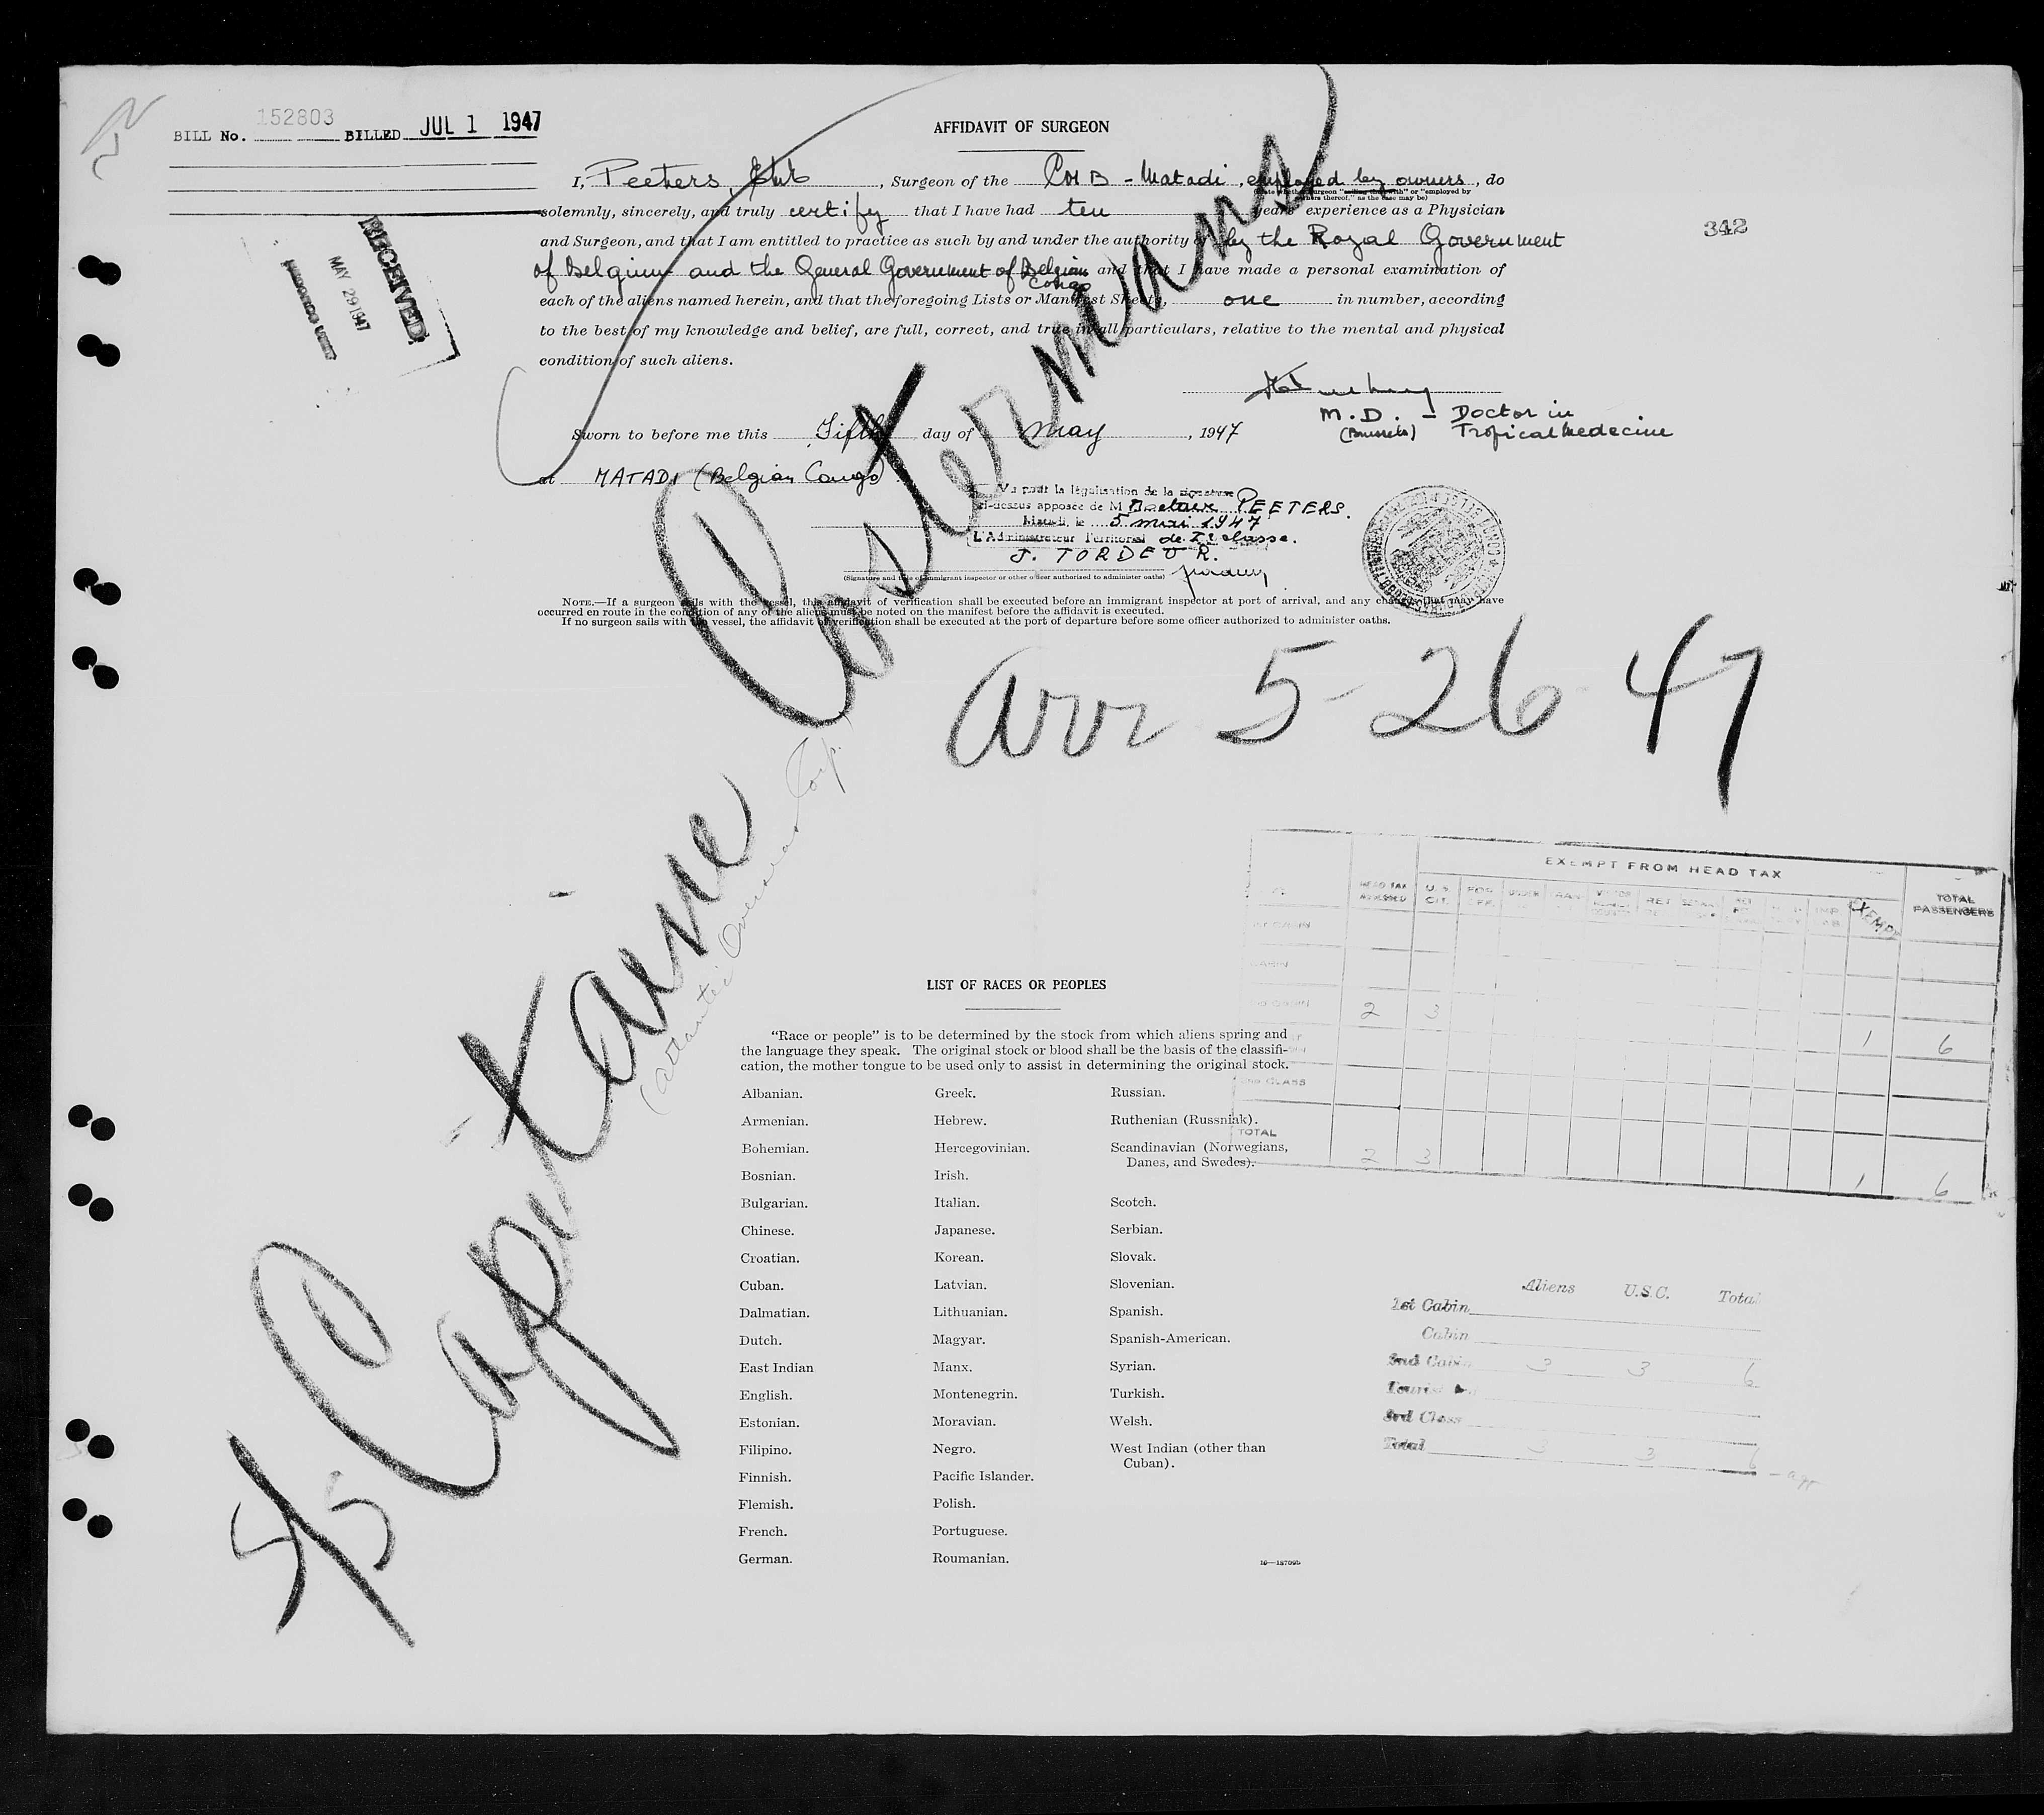 BILL No. 152803 BILLED JUL 1 1947
AFFIDAVIT OF SURGEON
I, Peeters, , Surgeon of the CMB - Matadi, employed by owners, do
solemnly, sincerely, and truly certify that I have had ten years' experience as a Physician
and Surgeon, and that I am entitled to practice as such by and under the authority of by the Royal Government
of Belgium and the General Government of Belgian Congo and that I have made a personal examination of
each of the aliens named herein, and that the foregoing Lists or Manifest Sheets, one in number, according
to the best of my knowledge and belief, are full, correct, and true in all particulars, relative to the mental and physical
condition of such aliens.
342
RECEIVED
MAY 29 1947
M.D. - Doctor in
(Brussels) Tropical Medecine
Sworn to before me this Fifth day of May, 1947
at MATADI (Belgian Congo)
Vu pour la légalisation de la signature
ci-dessus apposée de M Docteur PEETERS.
Matadi, le 5 mai 1947
L'Administrateur Territorial de 1e classe.
J. TORDEUR.
(Signature and title of immigrant inspector or other officer authorized to administer oaths)
NOTE.—If a surgeon sails with the vessel, this affidavit of verification shall be executed before an immigrant inspector at port of arrival, and any change that may have
occurred en route in the condition of any of the aliens must be noted on the manifest before the affidavit is executed.
If no surgeon sails with the vessel, the affidavit of verification shall be executed at the port of departure before some officer authorized to administer oaths.
S/S Capitaine Costermans
(Atlantic Overseas Corp.)
arr 5-26-47
EXEMPT FROM HEAD TAX
HEAD TAX ASSESSED U.S. CIT. FOR. OFF. UNDER TRAN. RET. EXEMPT TOTAL PASSENGERS
1st CABIN
CABIN
2nd CABIN 2 3 1 6
3rd CLASS
TOTAL 2 3 1 6
LIST OF RACES OR PEOPLES
"Race or people" is to be determined by the stock from which aliens spring and
the language they speak. The original stock or blood shall be the basis of the classifi-
cation, the mother tongue to be used only to assist in determining the original stock.
Albanian.
Armenian.
Bohemian.
Bosnian.
Bulgarian.
Chinese.
Croatian.
Cuban.
Dalmatian.
Dutch.
East Indian
English.
Estonian.
Filipino.
Finnish.
Flemish.
French.
German.
Greek.
Hebrew.
Hercegovinian.
Irish.
Italian.
Japanese.
Korean.
Latvian.
Lithuanian.
Magyar.
Manx.
Montenegrin.
Moravian.
Negro.
Pacific Islander.
Polish.
Portuguese.
Roumanian.
Russian.
Ruthenian (Russniak).
Scandinavian (Norwegians,
Danes, and Swedes).
Scotch.
Serbian.
Slovak.
Slovenian.
Spanish.
Spanish-American.
Syrian.
Turkish.
Welsh.
West Indian (other than
Cuban).
Aliens U.S.C. Total
1st Cabin
Cabin
2nd Cabin 3 3 6
Tourist
3rd Class
Total 3 3 6